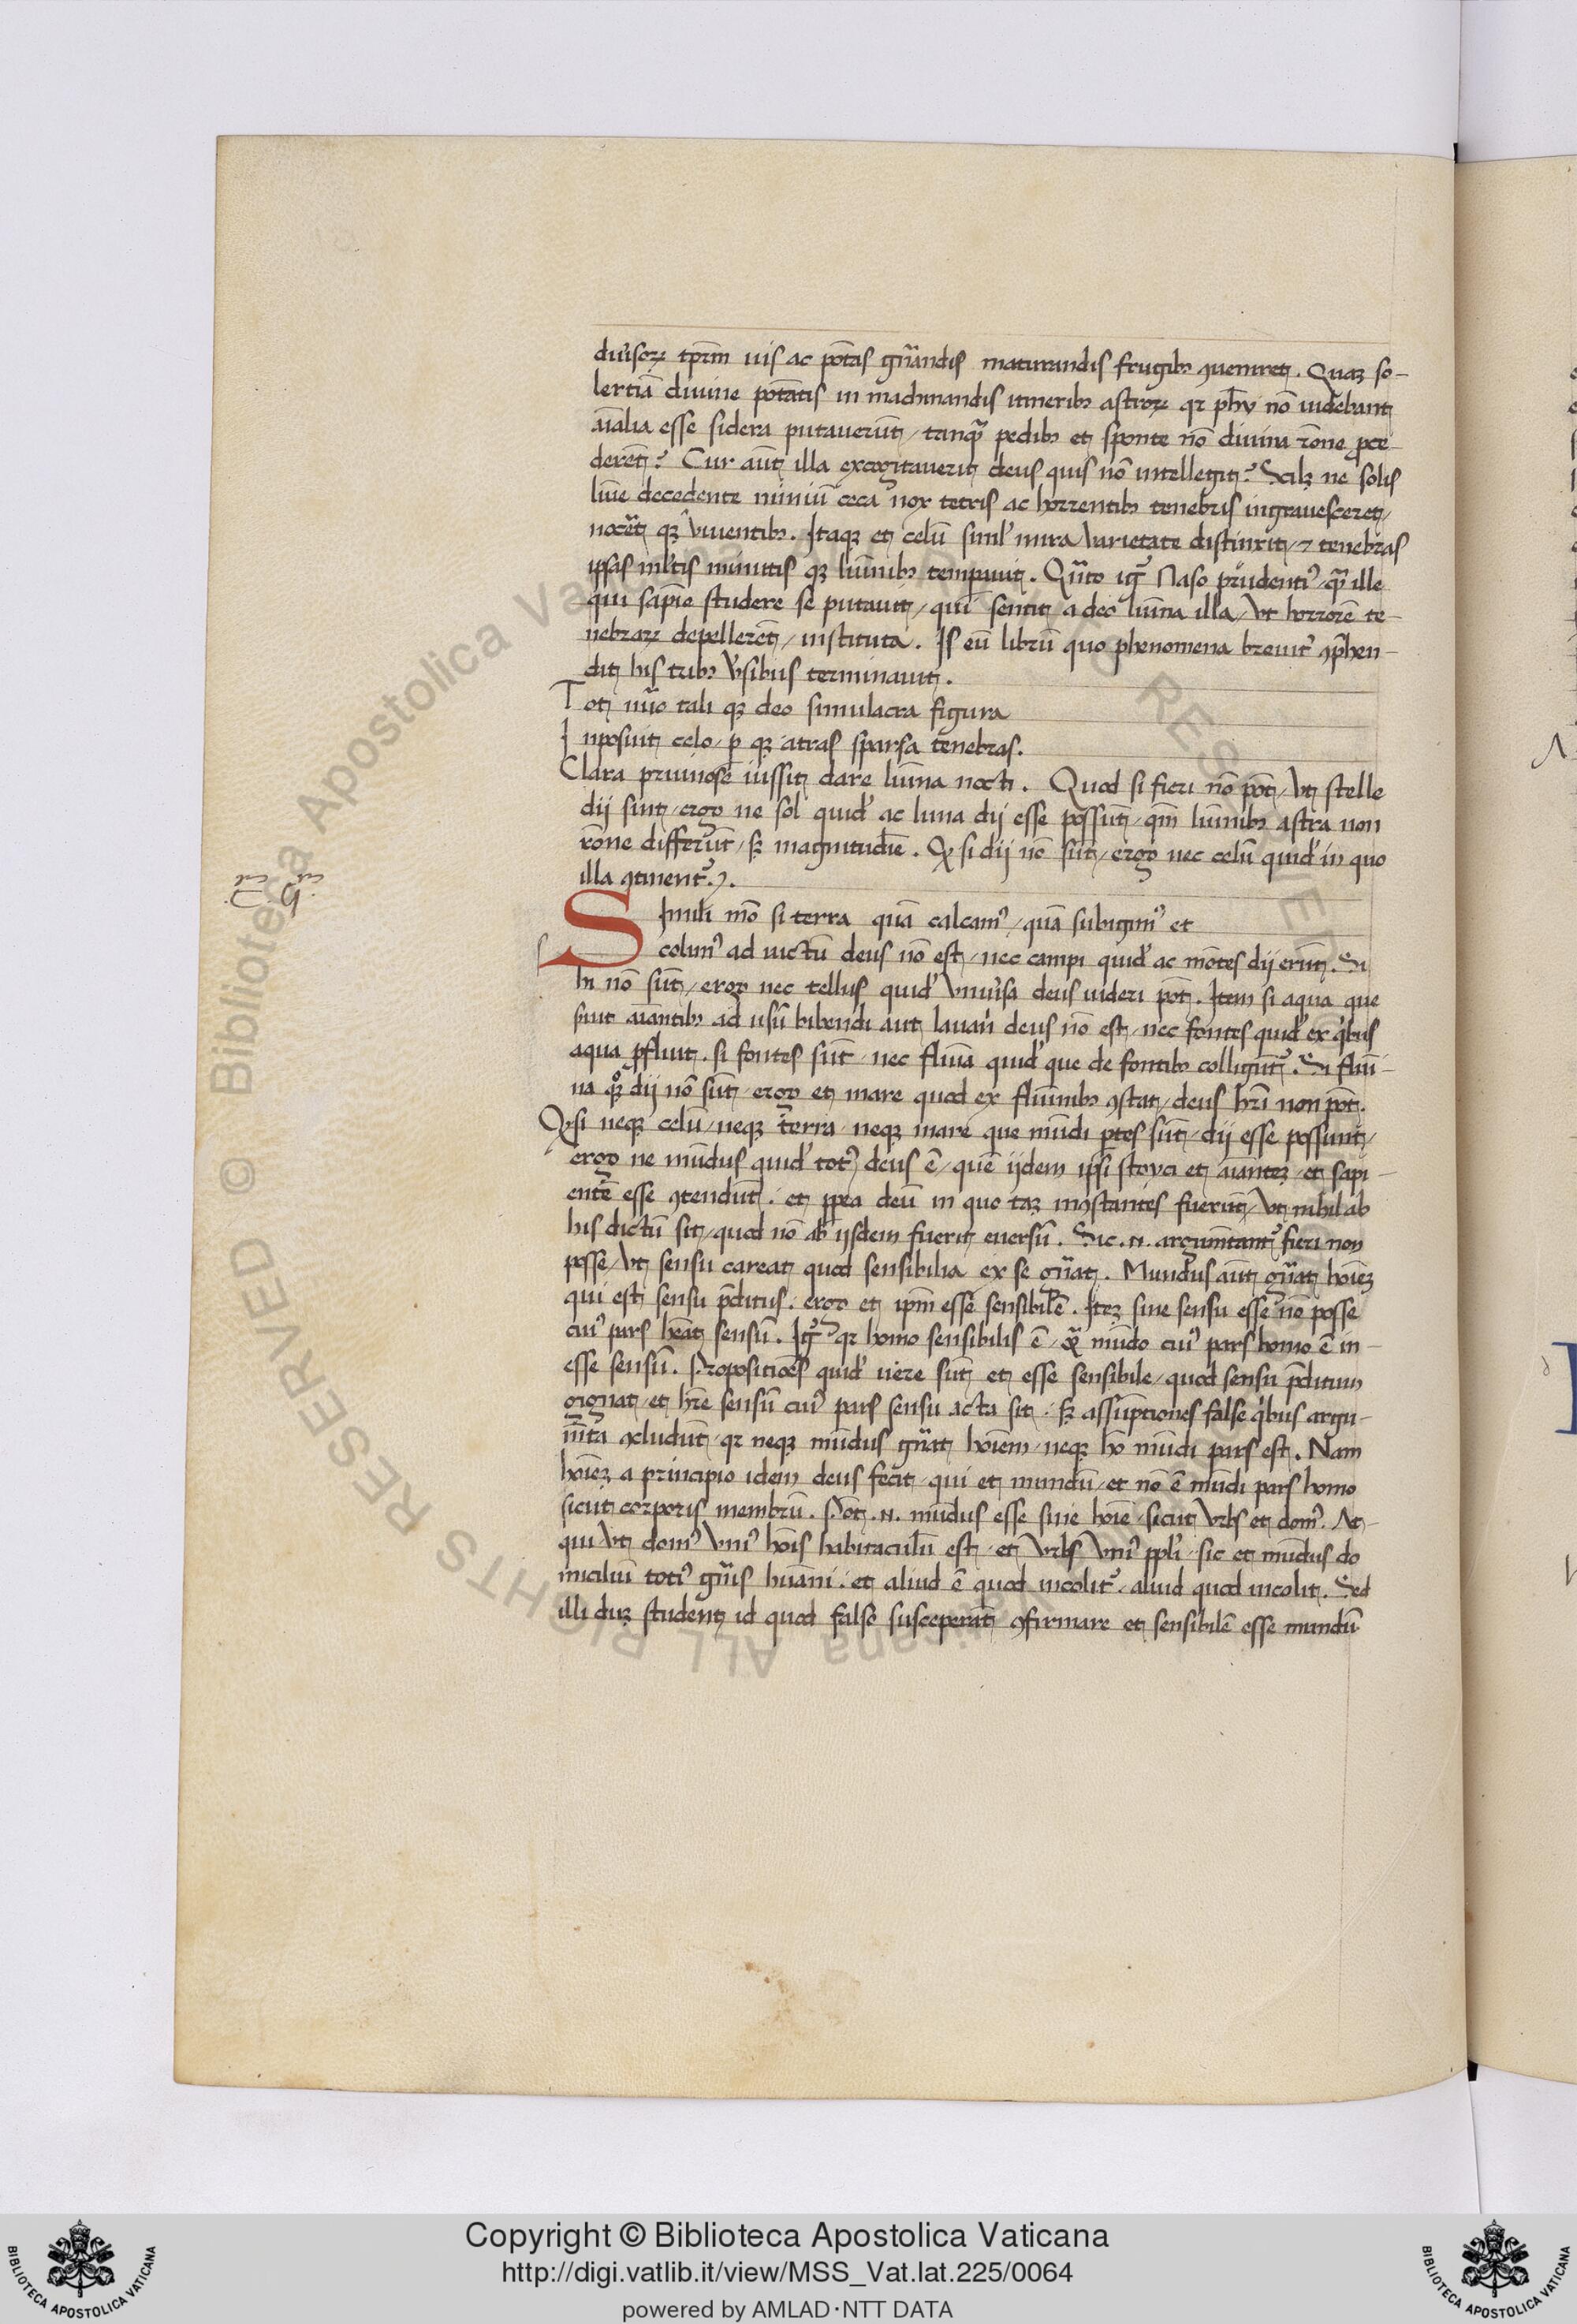 diuisoꝝ tp̄rm̄ uis ac pōtas gn̄andis maturandis frugibꝰ ꝯueniret. Quaꝫ so-
lertiā diuine potātis in machinandis itineribꝰ astroꝝ qꝛ ph̄y nō uidebant
aīalia esse sidera putauerūt / tanqᷓ pedibꝰ et sponte nō diuina rōne ꝓce-
derēt? Cur aūt illa excogitauerit deus quis nō intellegit? Scilꝫ ne solis
lūīe decedente nimiū ceca nox tetris ac horrentibꝰ tenebris ingrauesceret /
nocēt qꝫ viuentibꝰ. Itaqꝫ et celū siml̓ mira varietate distinxit / ⁊ tenebras
ipsas ml̓tis minutis qꝫ luminibꝰ temperauit. Qn̄to igr̄ Naso prudentiꝰ / qᷓ ille
qui sapiē studere se putauit / qui sentit a deo lumīna illa / vt horrorē te-
nebraꝝ depellerēt / instituta. Is eū librū quo phenomena breuit̓ ꝯp̄hen-
dit his tribꝰ v̓sibus terminauit.
Tot nūo tali qꝫ deo simulacra figura
Inposuit celo / ꝑ qꝫ atras sparsa tenebras.
Clara pruinose iussit dare lum̄ina nocti. Quod si fieri nō pōt / vt stelle
dij sint / ergo ne sol quid̓ ac luna dij esse possunt / qm̄ luminibꝰ astra non
rōne differūt / sꝫ magnitudīe. Qꝫ si dij nō sūt / ergo nec celū quid̓ in quo
illa ꝯtinent᷑.
Simili mō si terra quā calcamꝰ / quā subigimꝰ et
colimꝰ ad uictū deus nō est / nec campi quid̓ ac mōtes dij erūt. Si
hi nō sūt / ergo nec tellus quid̓ vniu̓sa deus uideri pōt. Item si aqua que
seruit aīantibꝰ ad usū bibendi aut lauandi deus nō est / nec fontes quid̓ ex qⁱbus
aqua ꝓfluit. si fontes sūt / nec flūia quid̓ que de fontibꝰ colligūt᷑. Si flūi-
na qꝫ dij nō sūt / ergo et mare quod ex fluminibꝰ ꝯstat / deus hr̄i non pōt.
Qꝫ si neqꝫ celū / neqꝫ terra / neqꝫ mare que mūdi ꝑtes sūt / dij esse possunt /
ergo ne mūdus quid̓ totꝰ deus ē / quē ijdem ipsi stoyci et aīantez / et sapi-
entē esse ꝯtendūt / et ꝓpea deū in quo taꝫ inꝯstantes fuerūt / vt nihil ab
his dictū sit / quod nō ab ijsdem fuerit euersū. Sic .n. argumētant᷑ fieri non
posse / vt sensu careat quod sensibilia ex se gn̄at. Mundus aūt gn̄at hoīeꝫ
qui est sensu p̄ditus / ergo et ip̄m esse sensibilē. Iteꝫ sine sensu esse nō posse
cuiꝰ pars heāt sensū. Igr̄ qꝛ homo sensibilis ē / qᷓ mūdo cuiꝰ pars homo ē in-
esse sensū. Propositiōes quid̓ uere sūt et esse sensibile / quod sensu p̄ditum
gignat / et hr̄e sensū cuiꝰ pars sensu acta sit / sꝫ assumptiones false qⁱbus argu-
mn̄ta ꝯcludūt / qꝛ neqꝫ mūdus gn̄at hoīem / neqꝫ hō mūdi pars est. Nam
hoīeꝫ a principio idem deus fecit / qui et mundū / et nō ē mūdi pars homo
sicut corporis membrū. Pōt .n. mūdus esse sine hoīe / sicut vrbs et domꝰ. At-
qui vt domꝰ vniꝰ hoīs habitaculū est / et vrbs vniꝰ ppl̓i / sic et mūdus do
miciliū totiꝰ gn̄is huāni / et aliud ē quod incolit᷑ / aliud quod incolit. Sed
illi duꝫ student id quod falso susceperāt ꝯfirmare et sensibilē esse mundū
Copyright © Biblioteca Apostolica Vaticana
http://digi.vatlib.it/view/MSS_Vat.lat.225/0064
powered by AMLAD·NTT DATA
BIBLIOTECA APOSTOLICA VATICANA
BIBLIOTECA APOSTOLICA VATICANA